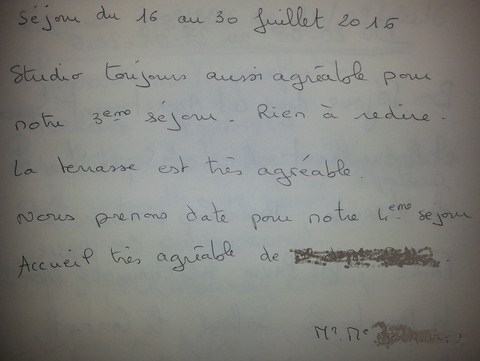 Séjour du 16 au 30 Juillet 2016
Studio toujours aussi agréable pour
notre 3eme séjour. Rien à redire.
La terrasse est très agréable.
Nous prenons date pour notre 4eme séjour
Accueil très agréable de
Mr. Me